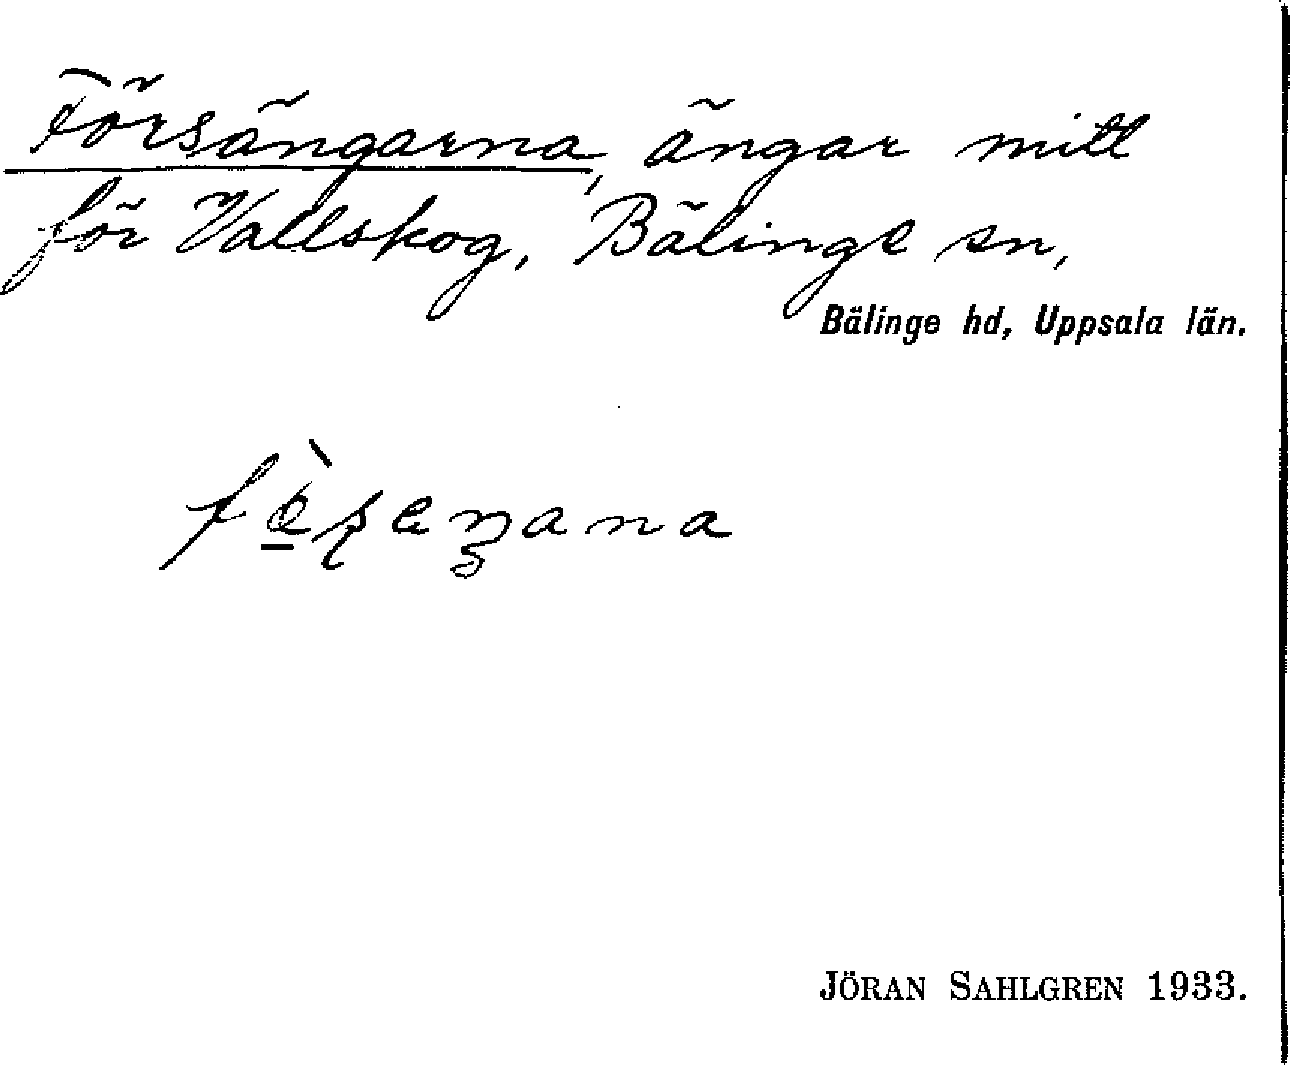 Försängarna, ängar mitt
för Vallskog, Bälinge sn,
Bälinge hd, Uppsala län.
JÖRAN SAHLGREN 1933.